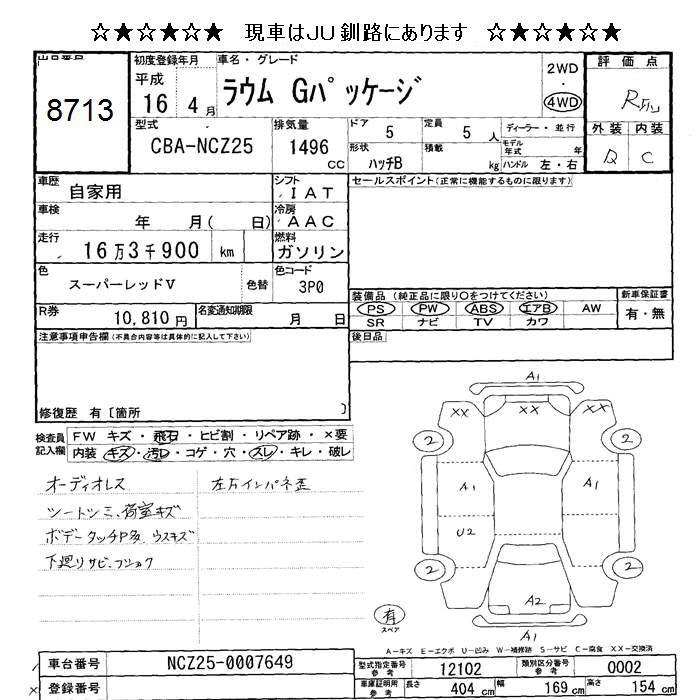 ☆★☆★☆★ 現車はJU釧路にあります ☆★☆★☆★
8713
初度登録年月
平成
16年 4月
車名・グレード
ラウム Gパッケージ
2WD
4WD
評価点
外装 内装
D C
型式
CBA-NCZ25
排気量
1496 CC
ドア 5
定員 5人
形状 ハッチB
積載 kg
ディーラー・並行
モデル年式 年
ハンドル 左・右
車歴 自家用
シフト IAT
セールスポイント(正常に機能するものに限ります)
車検 年 月( 日)
冷房 AAC
走行 16万3千900 km
燃料 ガソリン
色 スーパーレッドV 色替
色コード 3P0
装備品(純正品に限り○をつけてください)
PS PW ABS エアB AW
SR ナビ TV カワ
新車保証書
有・無
R券 10,810円
名変通知期限 月 日
注意事項申告欄(不具合内容等は具体的に記入して下さい)
後日品
修復歴 有〔箇所 〕
検査員記入欄
FW キズ・飛石・ヒビ割・リペア跡・×要
内装 キズ・汚レ・コゲ・穴・スレ・キレ・破レ
オーディオレス
シートシミ、荷室キズ
ボデータッチP多 ウスキズ
下廻りサビ、フショク
左右インパネ歪
A1
XX XX XX
2 2
A1 A1
U2
2 2
A2
A1
有
スペア
A-キズ E-エクボ U-凹み W-補修跡 S-サビ C-腐食 XX-交換済
車台番号 NCZ25-0007649
登録番号
型式指定番号 参考 12102
類別区分番号 参考 0002
車庫証明用 参考 長さ 404 cm 幅 169 cm 高さ 154 cm